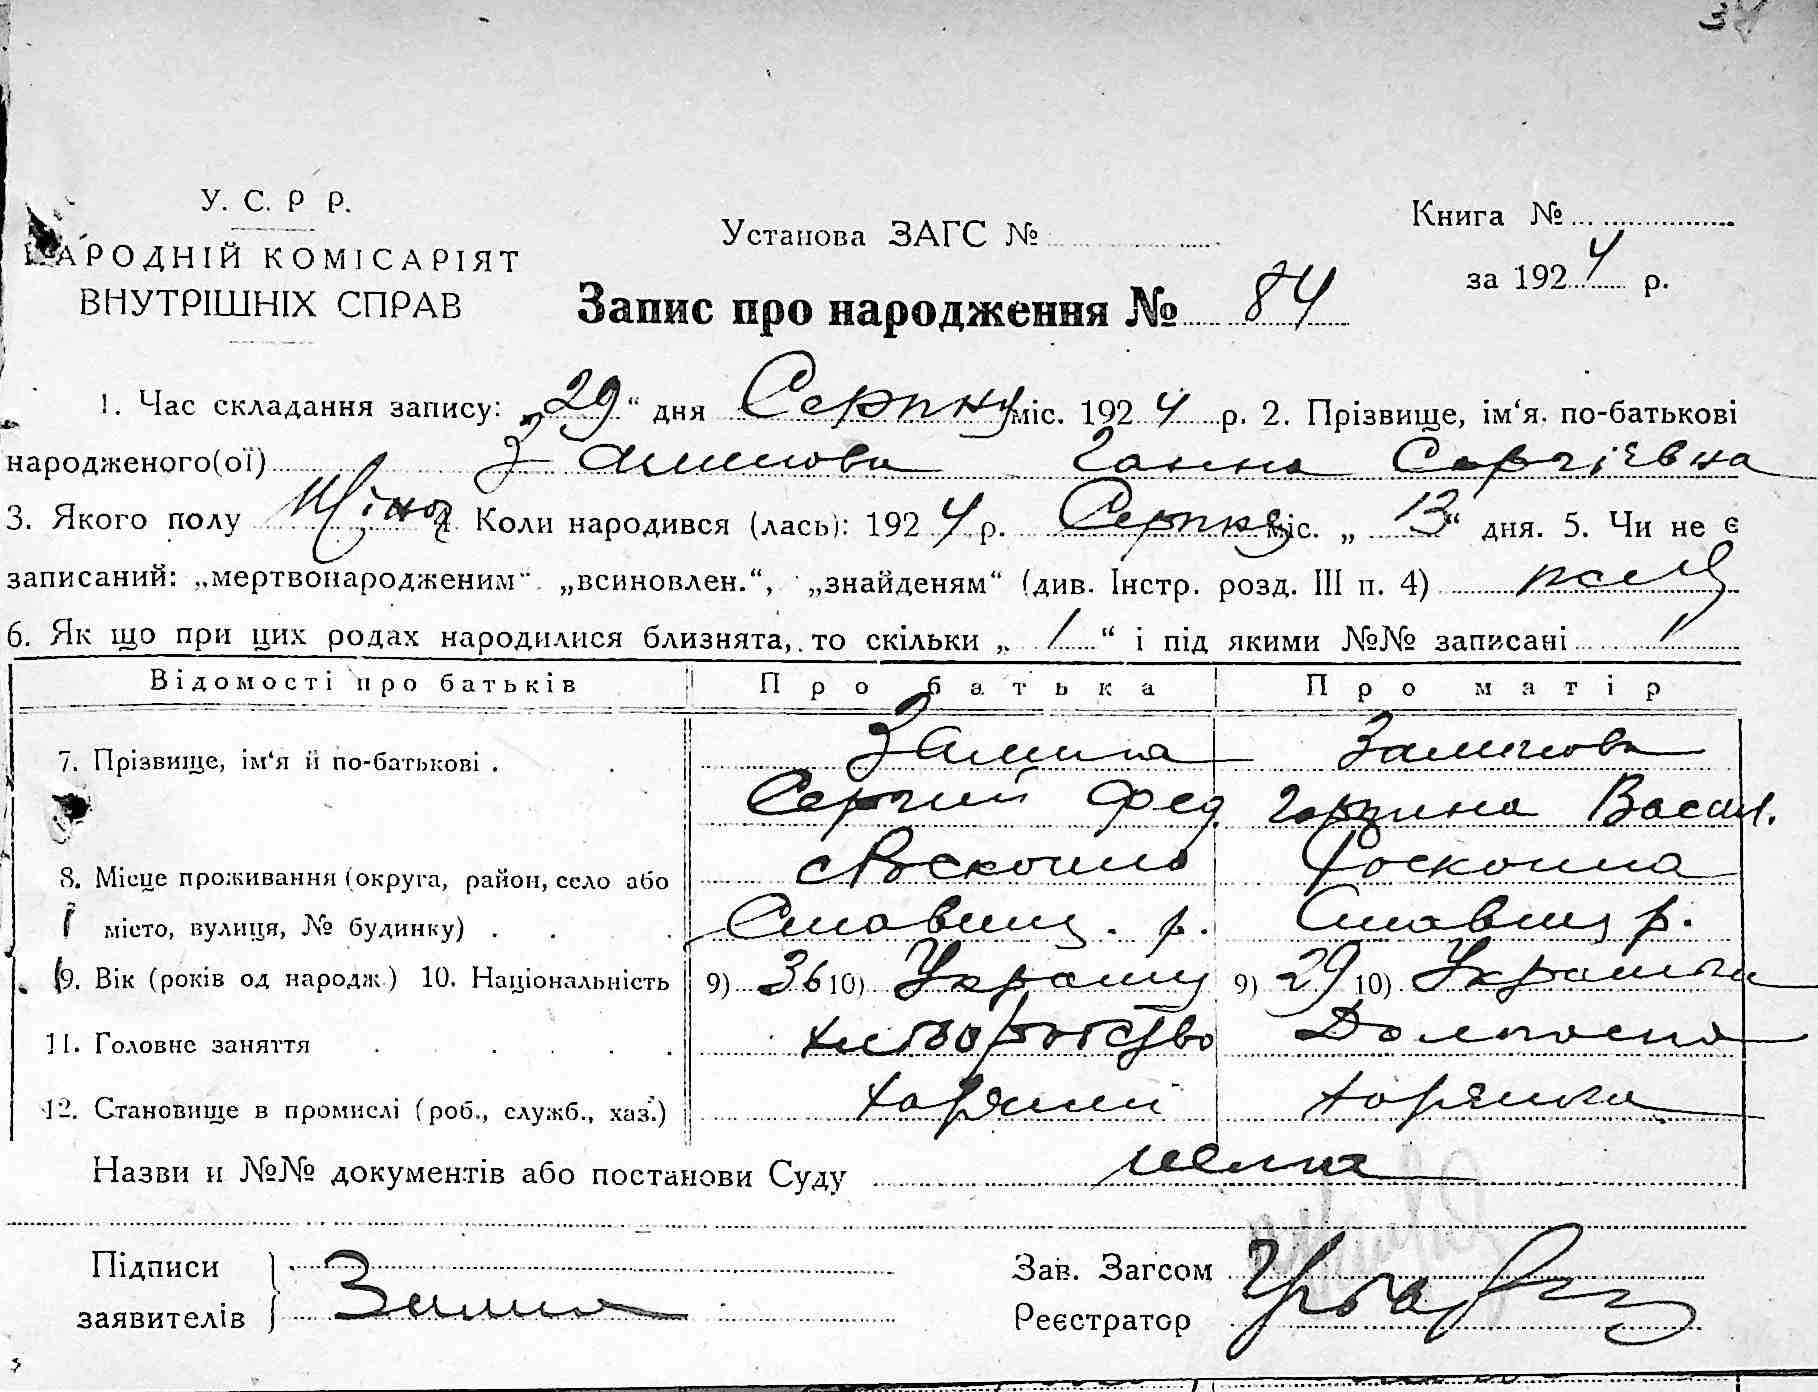 У. С. Р Р.
НАРОДНІЙ КОМІСАРІЯТ
ВНУТРІШНІХ СПРАВ
Установа ЗАГС №
Книга №
за 1924 р.
Запис про народження № 84
1. Час складання запису: „29“ дня Серпня міс. 1924 р. 2. Прізвище, ім‘я, по-батькові
народженого(ої) Ганна Сергіївна
3. Якого полу Жіноч. Коли народився (лась): 1924 р. Серпня міс. „13“ дня. 5. Чи не є
записаний: „мертвонародженим“, „всиновлен.“, „знайденям“ (див. Інстр. розд. III п. 4)
6. Як що при цих родах народилися близнята, то скільки „ / “ і під якими №№ записані /
Відомості про батьків Про батька Про матір
7. Прізвище, ім‘я й по-батькові .
Сергий Фед. Горпина Васил.
8. Місце проживання (округа, район, село або с Роскошна Роскошна
місто, вулиця, № будинку) . . . Ставищ. р. Ставищ р.
9. Вік (років од народж.) 10. Національність 9) 36 10) Украінц 9) 29 10) Украінка
11. Головне заняття . . . . . . хліборобство Домашня
12. Становище в промислі (роб., служб., хаз.)
Назви й №№ документів або постанови Суду нема
Підписи
заявителів
Зав. Загсом
Реєстратор